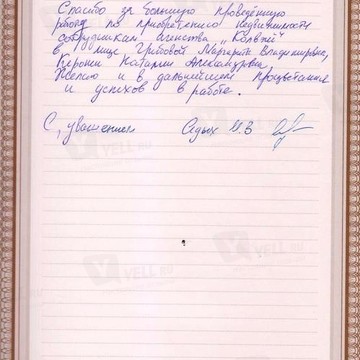 Спасибо за большую проведённую
работу по приобретению недвижимости
сотрудникам агенства "Колвэй"
в лице Гритовой Маргарите Владимировне,
Керони Наталии Александровне,
Желаю и в дальнейшем процветания
и успехов в работе.
С, уважением Седых И.В
YELL.RU
YELL.RU